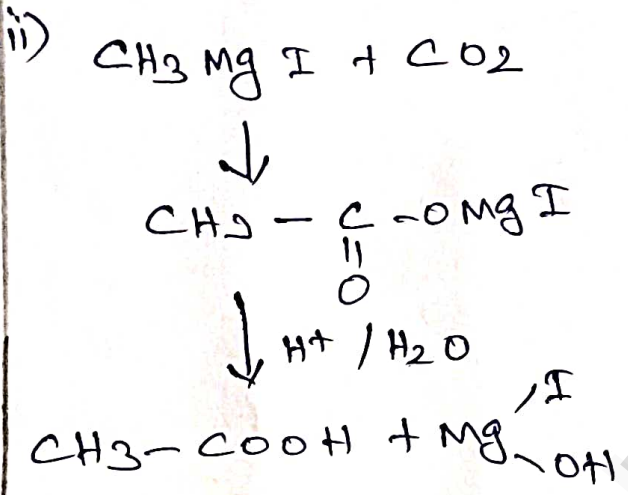 ii) CH3 Mg I + CO2
↓
CH3 - C - O Mg I
||
O
↓ H+ / H2O
CH3 - COOH + Mg
I
OH